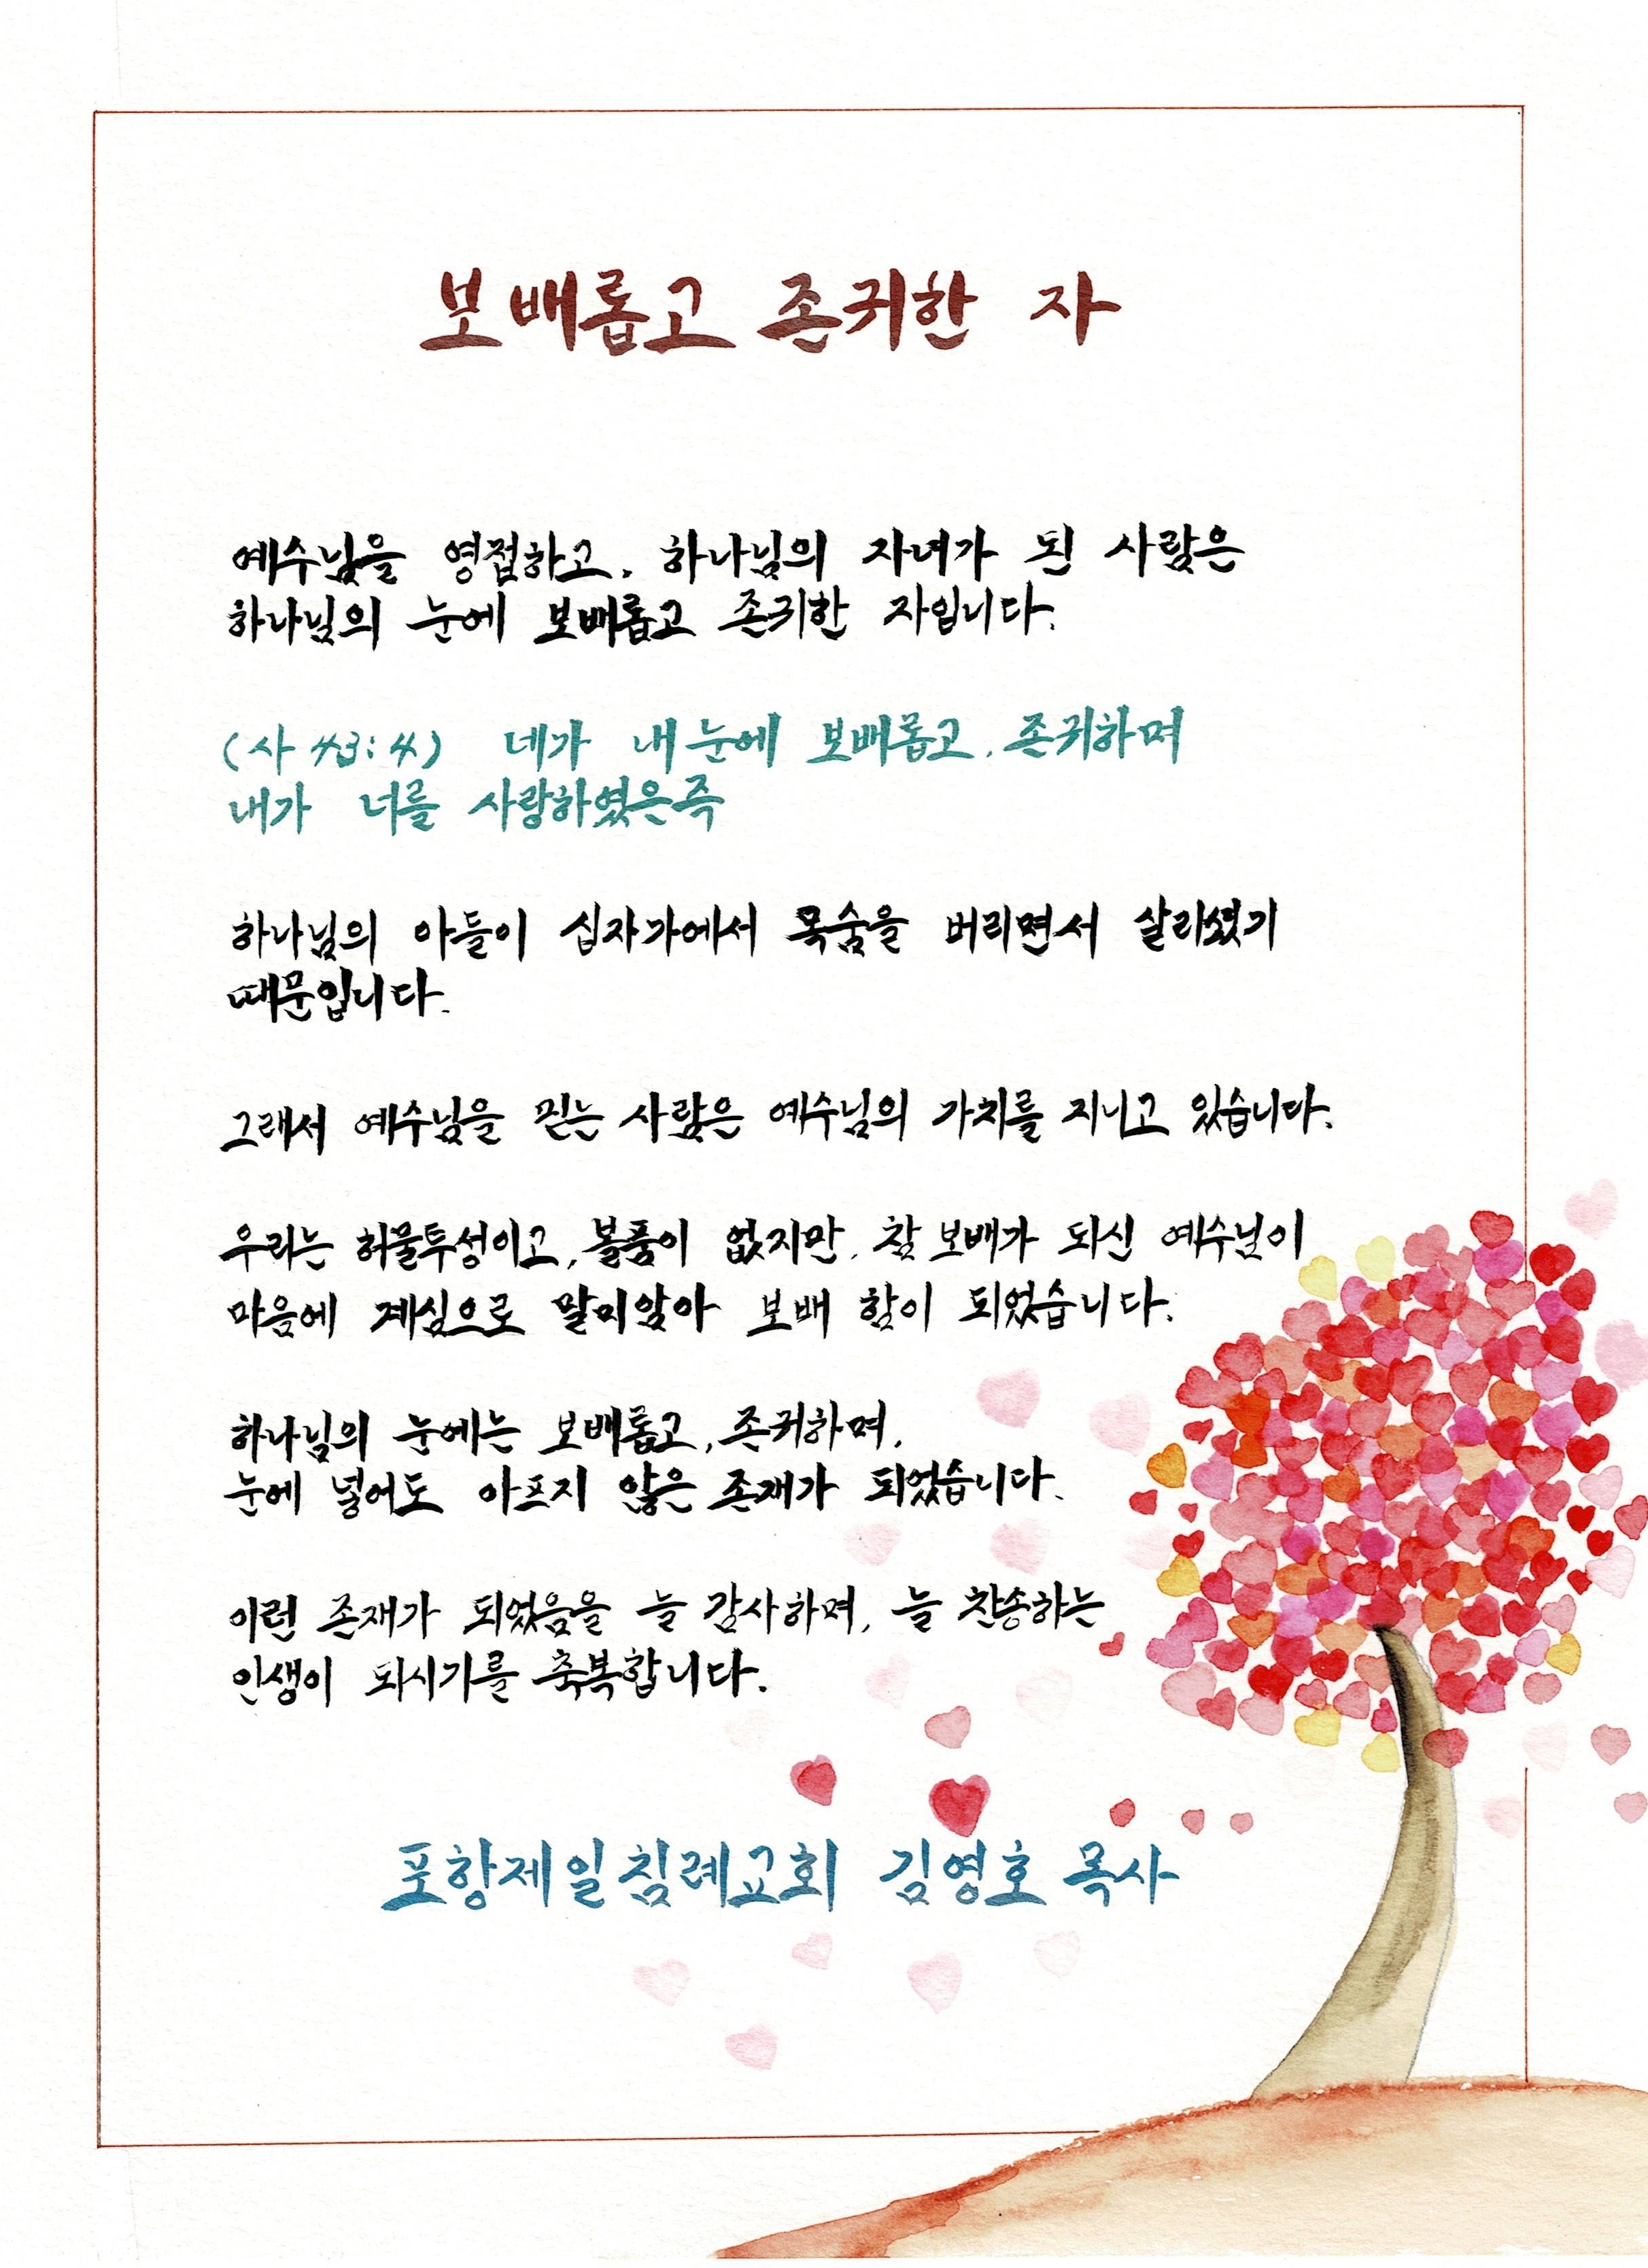 보배롭고 존귀한 자
예수님을 영접하고, 하나님의 자녀가 된 사람은
하나님의 눈에 보배롭고 존귀한 자입니다.
(사 43:4) 네가 내 눈에 보배롭고, 존귀하며
내가 너를 사랑하였은즉
하나님의 아들이 십자가에서 목숨을 버리면서 살리셨기
때문입니다.
그래서 예수님을 믿는 사람은 예수님의 가치를 지니고 있습니다.
우리는 허물투성이고, 볼품이 없지만, 참 보배가 되신 예수님이
마음에 계심으로 말미암아 보배 함이 되었습니다.
하나님의 눈에는 보배롭고, 존귀하며,
눈에 넣어도 아프지 않은 존재가 되었습니다.
이런 존재가 되었음을 늘 감사하며, 늘 찬송하는
인생이 되시기를 축복합니다.
포항제일침례교회 김영호 목사